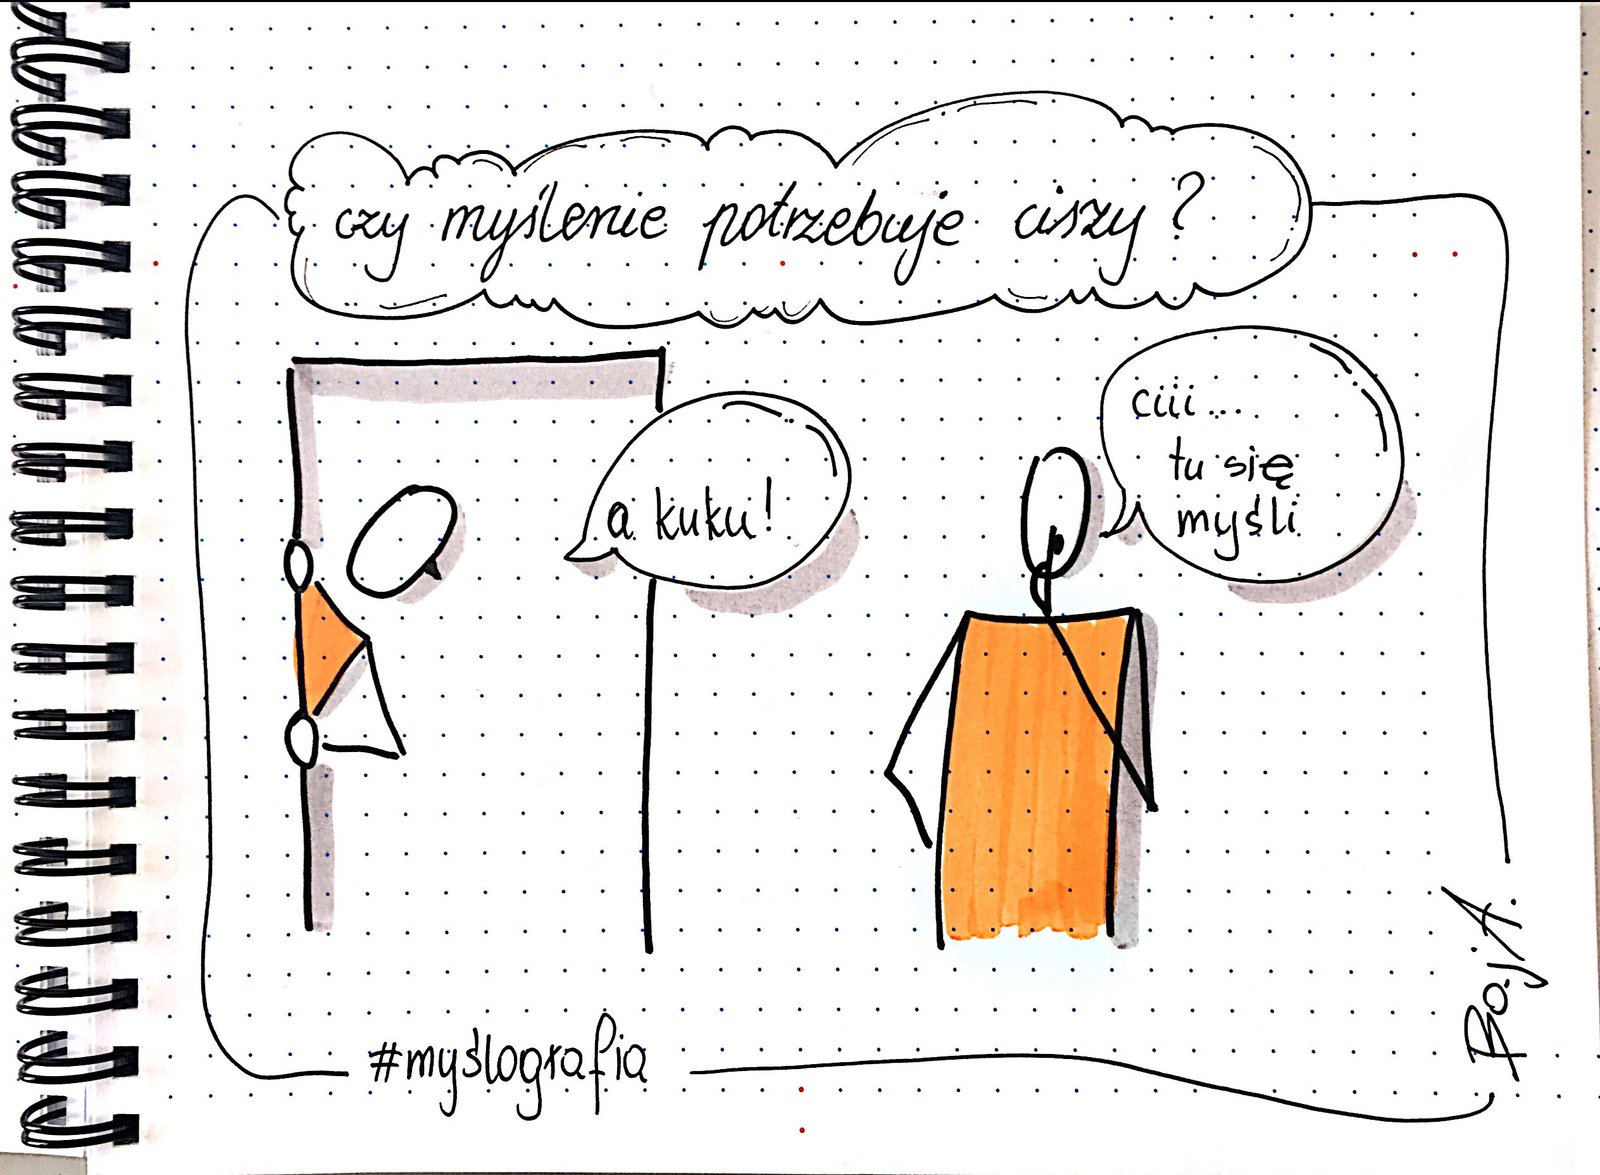 czy myślenie potrzebuje ciszy?
a kuku!
ciii....
tu się
myśli
#myślografia